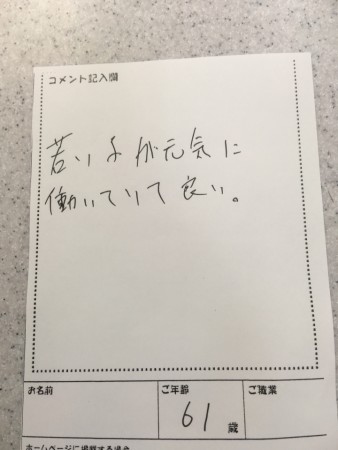 コメント記入欄
若い子が元気に
働いていて良い。
お名前
ご年齢
ご職業
61歳
ホームページに掲載する場合